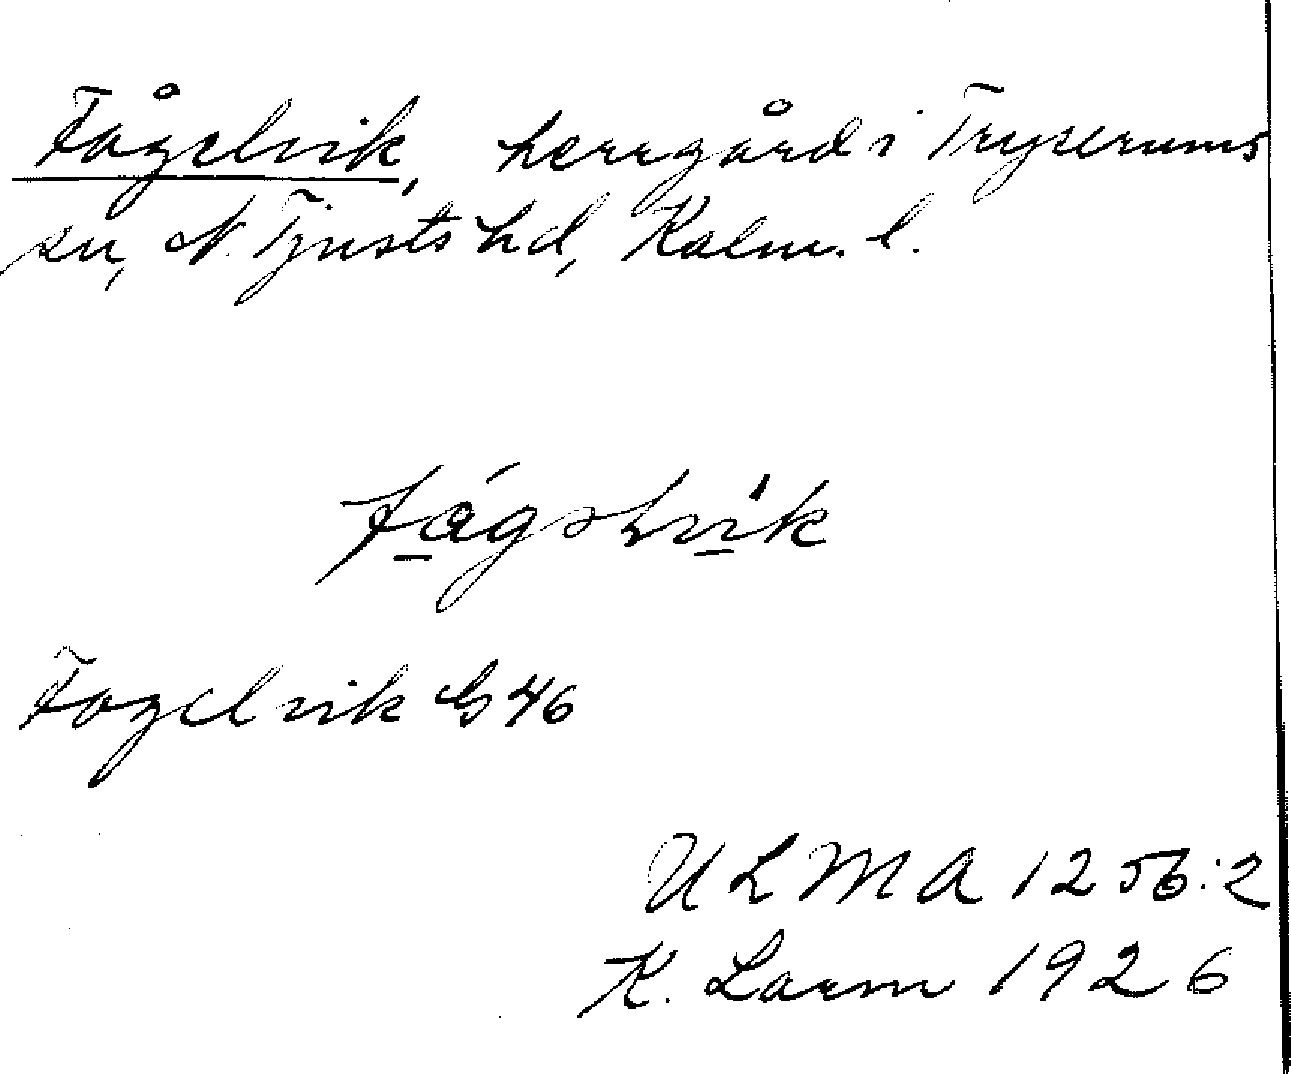 Fågelvik, herrgård i Tryserums
sn, N. Tjusts hd, Kalm. l.
Fogelvik G 46
ULMA 1256:2
K. Larm 1926